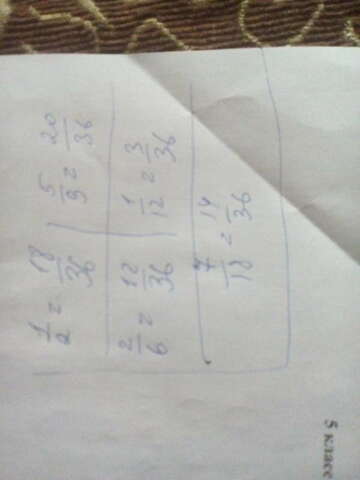 1/2 = 18/36 5/9 = 20/36
2/6 = 12/36 1/12 = 3/36
7/18 = 14/36
5 класс